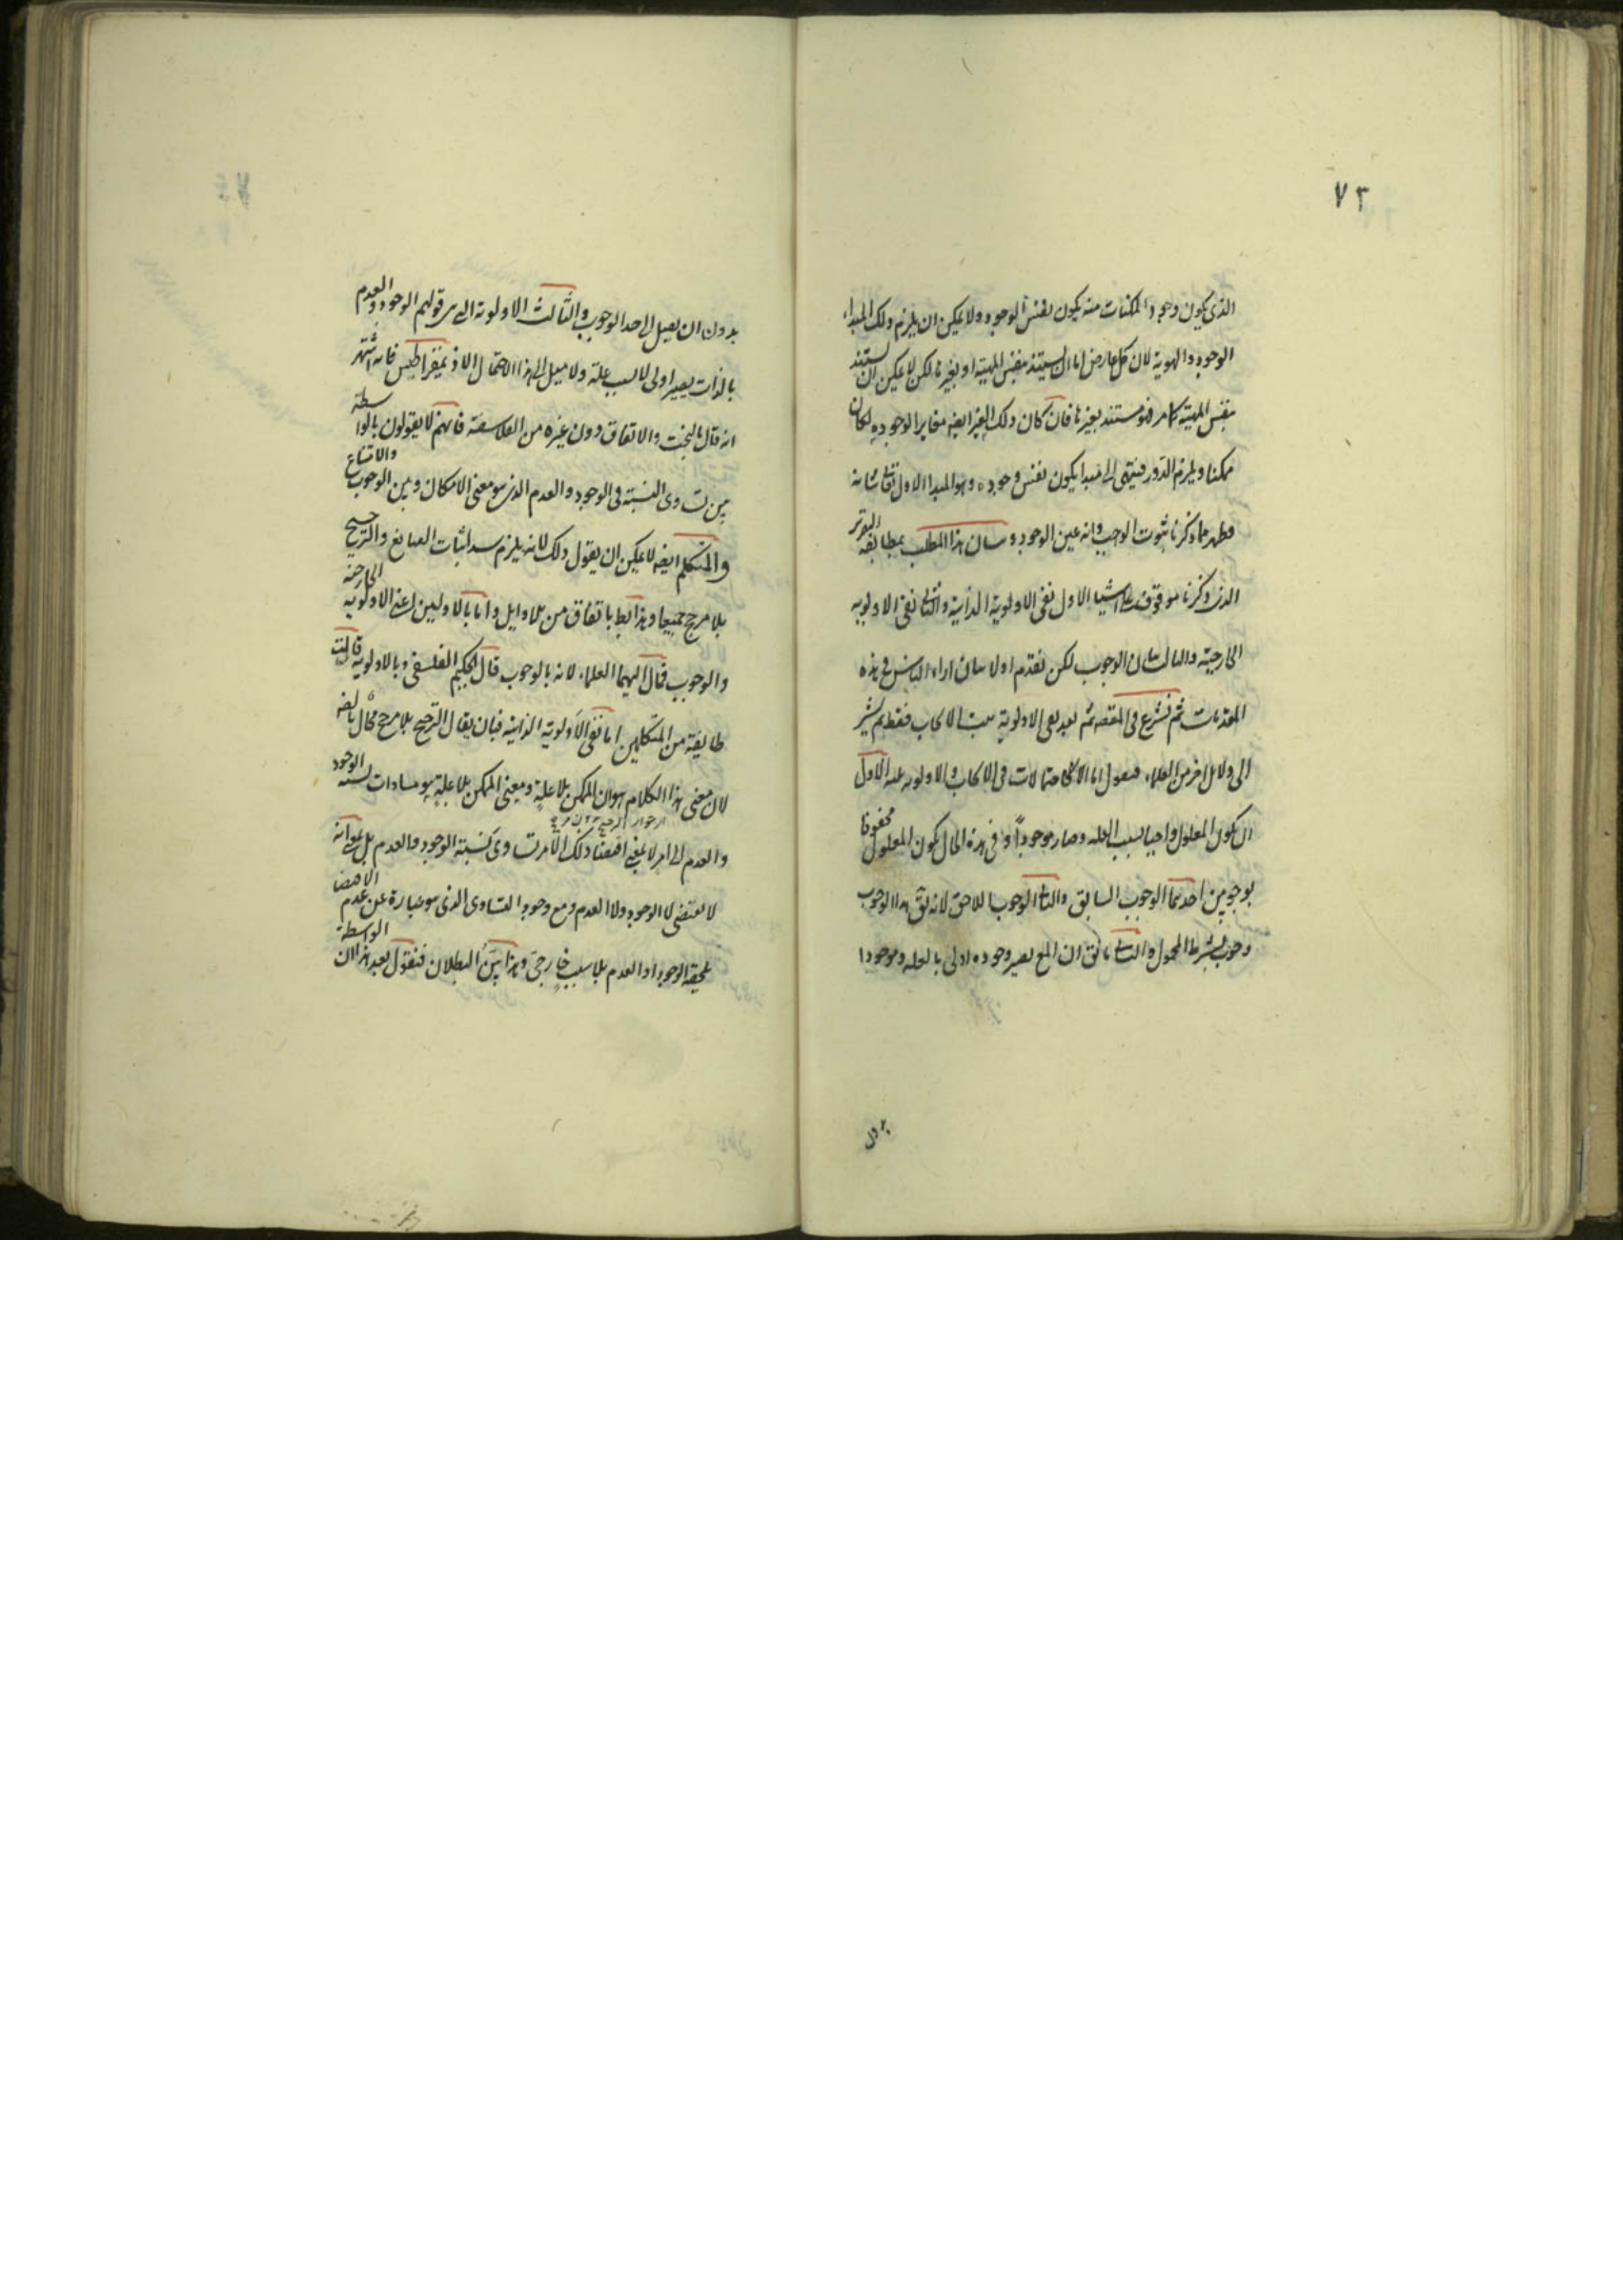 ٧٣
الذى يكون وجود الممكنات منه يكون نفس الوجود ولا يمكن ان يلزم ذلك المبداء
الوجود والهوية لان كل عارض اما ان يستند بنفس المهية او بغيرها لكن لا يمكن ان يستند
بنفس المهية كما مر فهو مستند بغيرها فان كان ذلك الغير ايضه مغاير الوجوده لكان
ممكنا ويلزم الدور فينتهى الى مبدا يكون نفس وجوده وهو المبدا الاول تعالى شانه
فظهر مما ذكرنا ثبوت الواجب وانه عين الوجود وبيان هذا المطلب بمطابقة
الذى ذكرنا موقوف على اشيا الاول نفى الاولوية الذاتية والثانى نفى الاولوية
الخارجية والثالث بيان الوجوب لكن نقدم اولا بيان اراء الناس فى هذه
المقدمات ثم نشرع فى المقصد ثم بعد نفى الاولوية الايجاب فقط ثم نشير
الى دلائل اخر من العلماء فنقول اما احتمالات فى الايجاب والاولوية الاول
ان يكون المعلول واجبا بسبب العلة وصار موجودا وفى هذه الحال يكون المعلول محفوفا
بوجوبين احدهما الوجوب السابق والثانى الوجوب اللاحق لانه يق هذا الوجوب
وجوب بشرط المحمول والثانى ما يق ان المع يصير وجوده اولى بالعلة وموجودا
بدون
بدون ان يصل الى حد الوجوب والثالث الاولوية التى قولهم الوجود والعدم
بالذات يصير اولى لا بسبب علة ولا ميل الى هذا الاحتمال الا ذيمقراطيس فانه اشتهر
انه قال بالبخت والاتفاق دون غيره من الفلاسفة فانهم لا يقولون بالواسطة
بين تساوى النسبة فى الوجود والعدم الذى هو معنى الامكان وبين الوجوب والامتناع
والمتكلم ايضه لا يمكن ان يقول ذلك لانه يلزم سد اثبات الصانع والترجيح
بلا مرجح جميعا وهذا باتفاق من الاوايل واما بالاولين اعنى الاولوية الخارجية
والوجوب فمال اليهما العلماء لانه بالوجوب قال الحكيم الفلسفى وبالاولوية قالت
طايفة من المتكلمين اما نفى الاولوية الذاتية فبان يقال الترجيح بلا مرجح محال
لان معنى هذا الكلام هو ان الممكن بلا علة ومعنى الممكن بلا علة هو مساوات نسبة الوجود
والعدم الى امر لا بمعنى اقتضا ذلك الامر تساوى نسبة الوجود والعدم بل بمعنى انه
لا يقتضى لا الوجود ولا العدم ومع وجود التساوى الذى هو عبارة عن عدم الاقتضا
يلحقه الوجود او العدم بلا سبب خارجى وهذا بين البطلان فنقول بعد هذا ان الواسطة